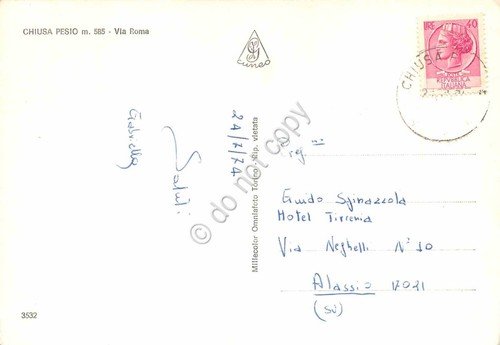 CHIUSA PESIO m. 585 - Via Roma
CUNEO
LIRE 40
REPVBBLICA
ITALIANA
CHIUSA
Saluti
Gabriella
24/7/74
Millecolor Omniafoto Torino - Rip. vietata
© do not copy
Preg.mi
Guido Spinazzola
Hotel Tirrenia
Via Neghelli N° 10
Alassio 17021
(SV)
3532